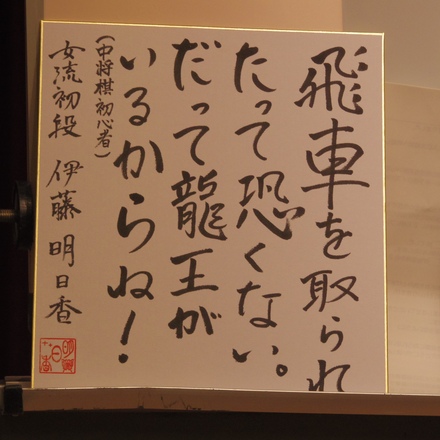 飛車を取られ
たって恐くない。
だって龍王が
いるからね!
(中将棋初心者)
女流初段 伊藤 明日香